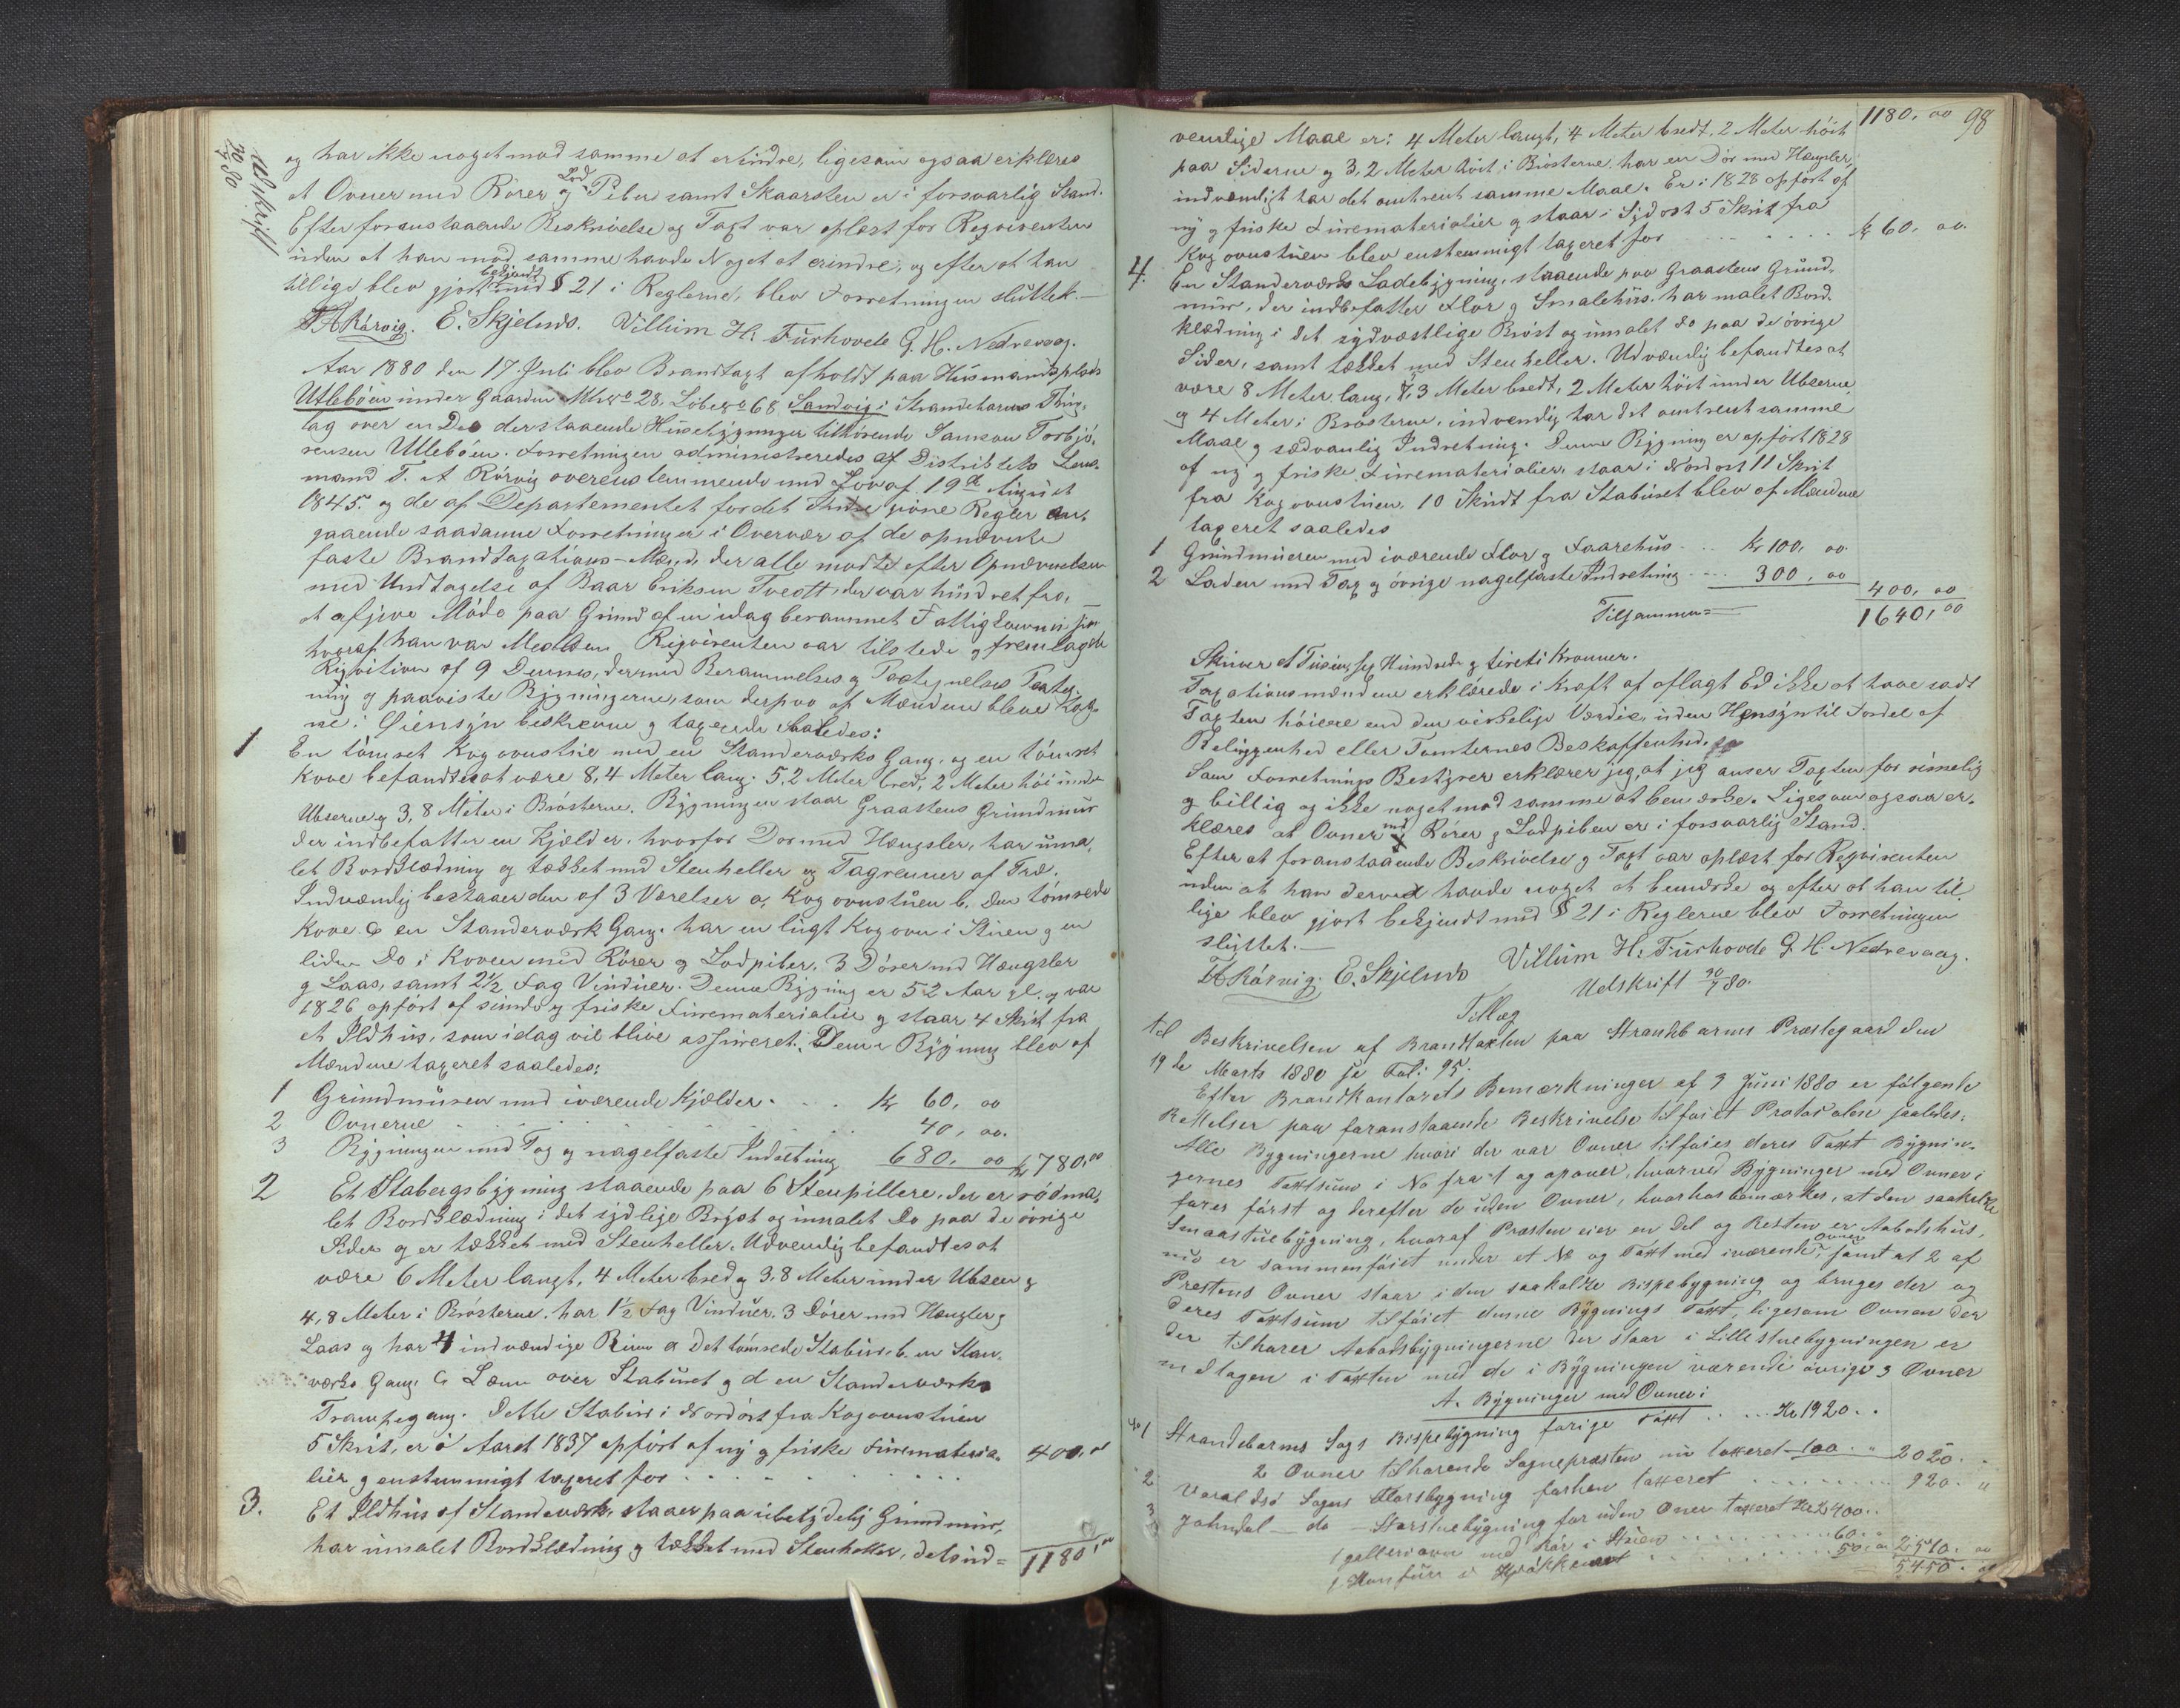 Udskrift
30/7 80.
og har ikke noget mod samme at erindre, ligesom ogsaa erklæres
at Ovner med Rører og Lod Piber samt Skaarsten er i forsvarlig Stand.
Efter foranstaaende Beskrivelse og Taxt var oplæst for Reqvirenten
uden at han mod samme havde Noget at erindre, og efter at han
tillige blev gjort bekjendt med § 21 i Reglerne, blev Forretningen sluttet.—
T A Rörvig. E. Skjelnes. Villum H. Furhovde G. H. Nedrevaag.
Aar 1880 den 17 Juli blev Brandtaxt afholdt paa Husmandsplads
Utlebøen under Gaarden Mtr No 28, Löbe No 68 Sandvig i Strandebarms Thing-
lag over en Del derstaaende Husebygninger tilhörende Samson Torbjö-
rensen Utleböen. Forretningen administreredes af Distriktets Lens-
mand T. A Rörvig overensstemmende med Lov af 19de August
1845. og de af Departementet for det Indre givne Regler an-
gaaende saadanne Forretninger i Overvær af de opnævnte
faste Brandtaxations-Mænd, der alle mødte efter Opnævnelsen
med Undtagelse af Baar Eriksen Tveitt, der var hindret fra,
at afgive Möde paa Grund af en idag berammet Fattigkommission
hvoraf han var Medlem Reqvirenten var tilstede og fremlagde
Reqvition af 9 Dennes, dermed Berammelses og Paategnelses Paateg-
ning og paaviste Bygningerne, som derpaa af Mændene bleve tag-
ne i Öiensyn beskrevne og taxerede saaledes:
1 En tömret Kogovnstue med en Standerværks Gang, og en tömret
Kove befandtes at være 8,4 Meter lang. 5,2 Meter bred, 2 Meter höi under
Ubserne og 3,8 Meter i Brösterne. Bygningen staar Graastens Grundmur
der indbefatter en Kjelder, hvorfor Dör med Hængsler, har uma-
let Bordklædning og tækket med Stenheller og Tagrenner af Træ.
Indvændig bestaaer den af 3 Værelser a, Kogovnstuen b. Den tömrede
Kove. c en Standerværk Gang. har en lugt Kogovn i Stuen og en
liden Do i Koven med Rører og Lodpiber, 3 Dörer med Hængsler
og Laas, samt 2½ Fag Vinduer. Denne Bygning er 52 Aar gl. og var
1826 opfört af sunde og friske Furematerialier og staar 4 Skrit fra
et Ildhus, som idag vil blive assureret. Denne Bygning blev af
Mændene taxeret saaledes:
1 Grundmuren med iværende Kjelder . . . Kr 60, 00
2 Ovnerne . . . 40, 00.
3 Bygningen med Tag og nagelfaste Indretning 680, 00 Kr 780,00
2 Et Stabergsbygning staaende paa 6 Stenpillere, der er rödma-
let Bordklædning i det sydlige Bröst og umalet Do paa de övrige
Sider og er tækket med Stenheller. Udvendig befandtes at
være 6 Meter langt, 4 Meter bred og 3,8 Meter under Ubserne og
4,8 Meter i Brösterne. har 1½ Fag Vinduer, 3 Dörer med Hængler og
Laas og har 4 indvændige Rum a Det tömrede Stabur, b. en Stan-
værks Gang. c Læm over Stabúret og d en Standerværks
Trampegang. Dette Stabur i Nordöst fra Kogovnstuen
5 Skrit, er i Aaret 1837 opfört af ny og friske Furemateria- 400,00
lier og enstemmigt taxeret for . . . .
3. Et Ildhús af Standeværk, staaer paa ubetydelig Grundmur,
har umalet Bordklædning og tækket med Stenheller, dets ud= 1180,00
1180,00 98
vendige Maal er: 4 Meter langt, 4 Meter bredt, 2 Meter höit
paa Siderne og 3,2 Meter höit i Brösterne. har en Dör med Hængsler,
indvændigt har det omtrent samme Maal. Er i 1828 opfört af
ny og friske Furematerialier og staar i Sydost 5 Skrit fra
Kogovnstuen blev enstemmigt taxeret for . . . . . . Kr 60, 00.
4. En Standerværks Ladebygning, staaende paa Graastens Grund-
mur, der indbefatter Flor og Smalehus. har malet Bord-
klædning i det sydvæstlige Bröst og umalet Do paa de övrige
Sider, samt tækket med Stenheller. Udvændig befandtes at
være 8 Meter lang, 4,3 Meter bredt, 2 Meter höit under Ubserne
og 4 Meter i Brösterne, indvendig har det omtrent samme
Maal og sædvanlig Indretning. Denne Bygning er opfört 1828
af ny og friske Furematerialier, staar i Nordost 11 Skrit
fra Kogovnstuen, 10 Skridt fra Stabúret blev af Mændene
taxeret saaledes
1 Grundmueren med iværende Flor og Faarehus . . . Kr 100, 00.
2 Laden med Tag og övrige nagelfaste Indretning . . . 300, 00 400, 00
Tilsammen= 1640,00
Skriver et Tusind, sex Hundrede og fireti Kroner.
Taxationsmændene erklærede i Kraft af aflagt Ed ikke at have sadt
Taxten höiere end den virkelige Værdie, uden Hensyn til Fordel af
Beliggenhed eller Tomternes Beskaffenhed.
Som Forretnings Bestyrer erklærer jeg, at jeg anser Taxten for rimelig
og billig og ikke noget mod samme at bemærke. Ligesom ogsaa er-
klæres at Ovner med Rører og Lodpiben er i forsvarlig Stand.
Efter at foranstaaende Beskrivelse og Taxt var oplæst for Reqvirenten
uden at han derved havde noget at bemærke og efter at han til-
lige blev gjort bekjendt med § 21 i Reglerne blev Forretningen
sluttet.—
T A Rörvig. E. Skjelnes Villum H. Furhovde G. H. Nedrevaag.
Udskrift 30/7 80.
Tillæg
til Beskrivelsen af Brandtaxten paa Strandebarms Præstegaard den
19de Marts 1880 se Fol: 95.
Efter Brandkontorets Bemærkninger af 3 Juni 1880 er fölgende
Rettelser paa foranstaaende Beskrivelse tilföiet Protocolen saaledes:
Alle Bygningerne hvori der var Ovner tilföies deres Taxt Bygnin-
gernes Taxtsum i No fra 1 og opover, hvorved Bygninger med Ovner i
föres först og derefter de uden Ovner, hvorhos bemærkes, at den saakaldte
Smaastuebygning, hvoraf Præsten eier en Del og Resten er Aabodshus,
nu er sammenföiet under et No og Taxt med iværende Ovner, samt at 2 af
Prestens Ovner staar i den saakaldte Bispebygning og bruges der og
deres Taxtsum tilföiet denne Bygnings Taxt, ligesom Ovnen der
der tilhører Aabodsbygningerne der staar i Lillestuebygningen er
medtagen i Taxten med de i Bygningen værende övrige 3 Ovner
A. Bygninger med Ovner i
No 1 Strandebarms Sogs Bispebygning forige Taxt . . . . Kr 1920. .
2 Ovner tilhørende Sognepræsten nu taxeret 100. . " 2020. .
2 Varaldsö Sogns Florsbygning forhen taxeret . . . . . . . 920. "
3 Johndal — do — Storstuebygning for uden Ovner taxeret Kr 2400. .
1 gallerioven med Rör i Stuen . . . . . . 60. .
1 Komfur i Kjökkenet . . . . . . . 50. 00 2510. 00
5450. 00